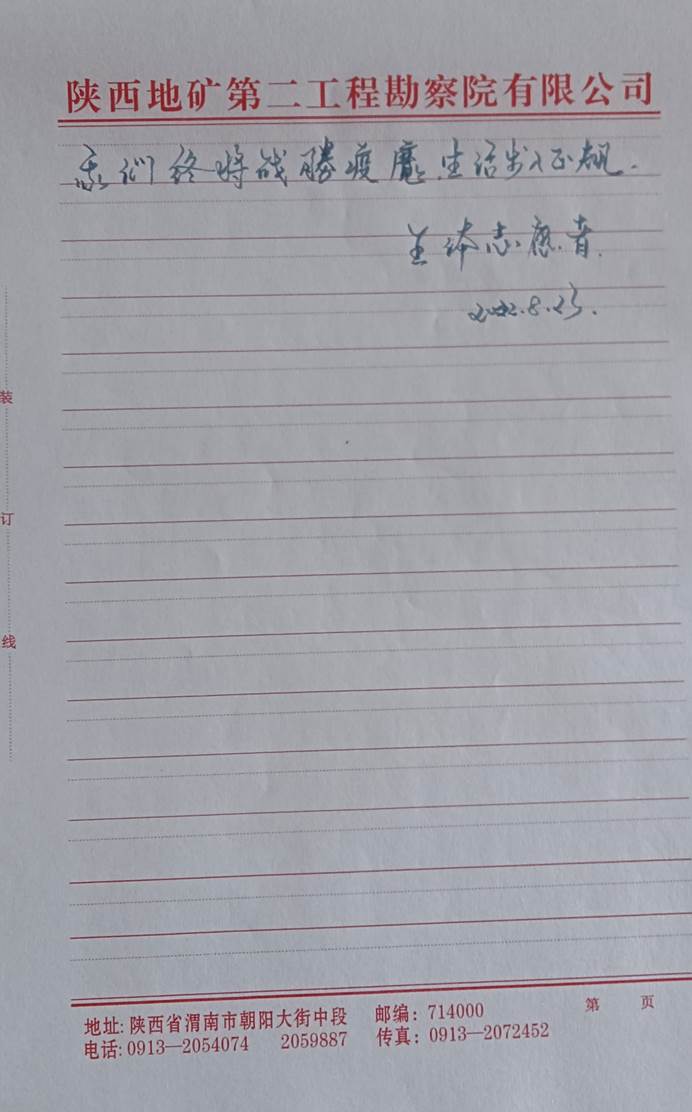 陕西地矿第二工程勘察院有限公司
我们终将战勝疫魔,生活步入正规.
全体志愿者.
2022.8.23.
装
订
线
地址:陕西省渭南市朝阳大街中段 邮编:714000 第 页
电话:0913—2054074 2059887 传真:0913—2072452